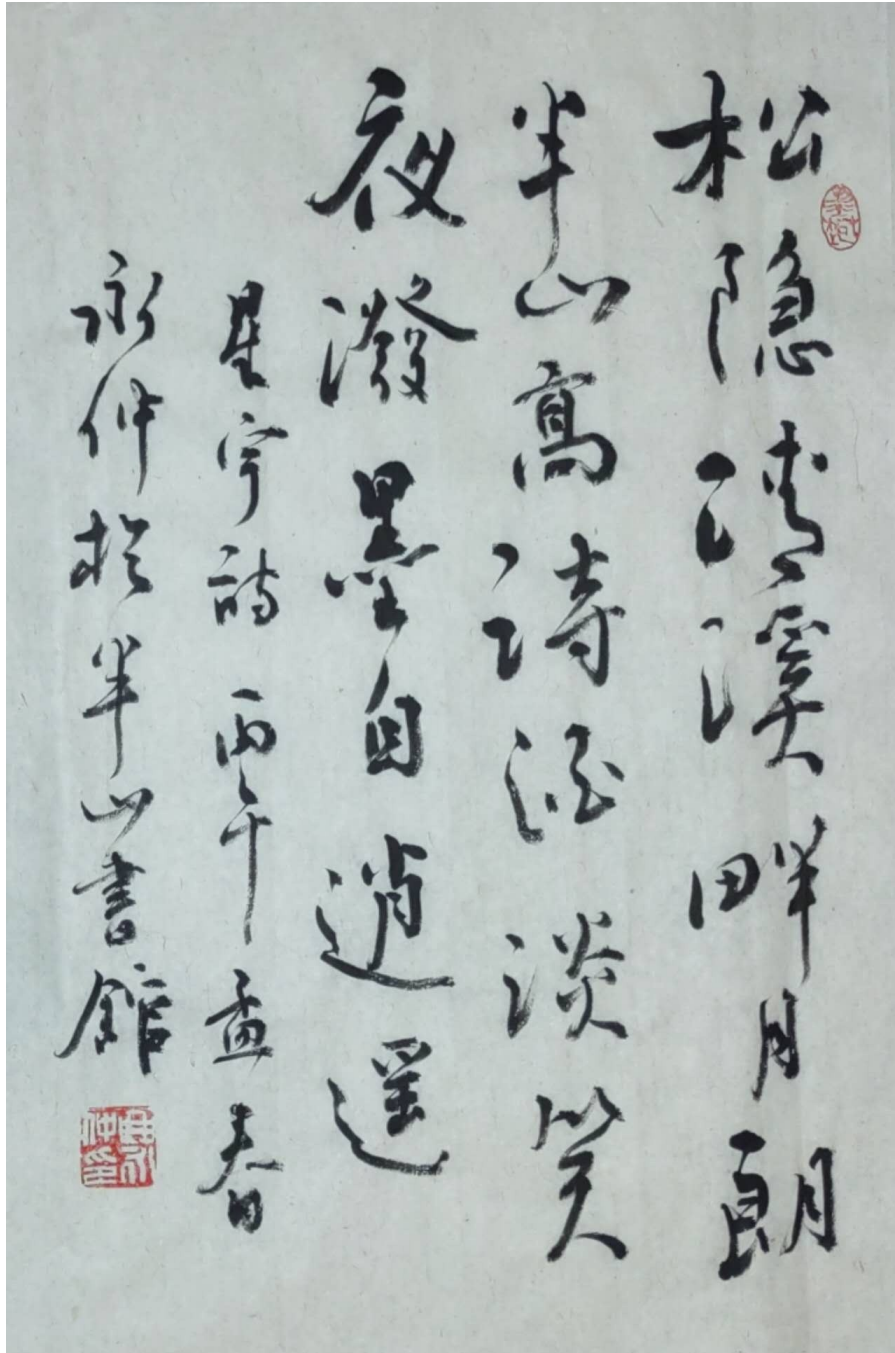 松隐清溪畔月朗
半山高诗酒淡笑
夜潑墨自逍遥
星宇詩 丙午孟春
永仲於半山書館